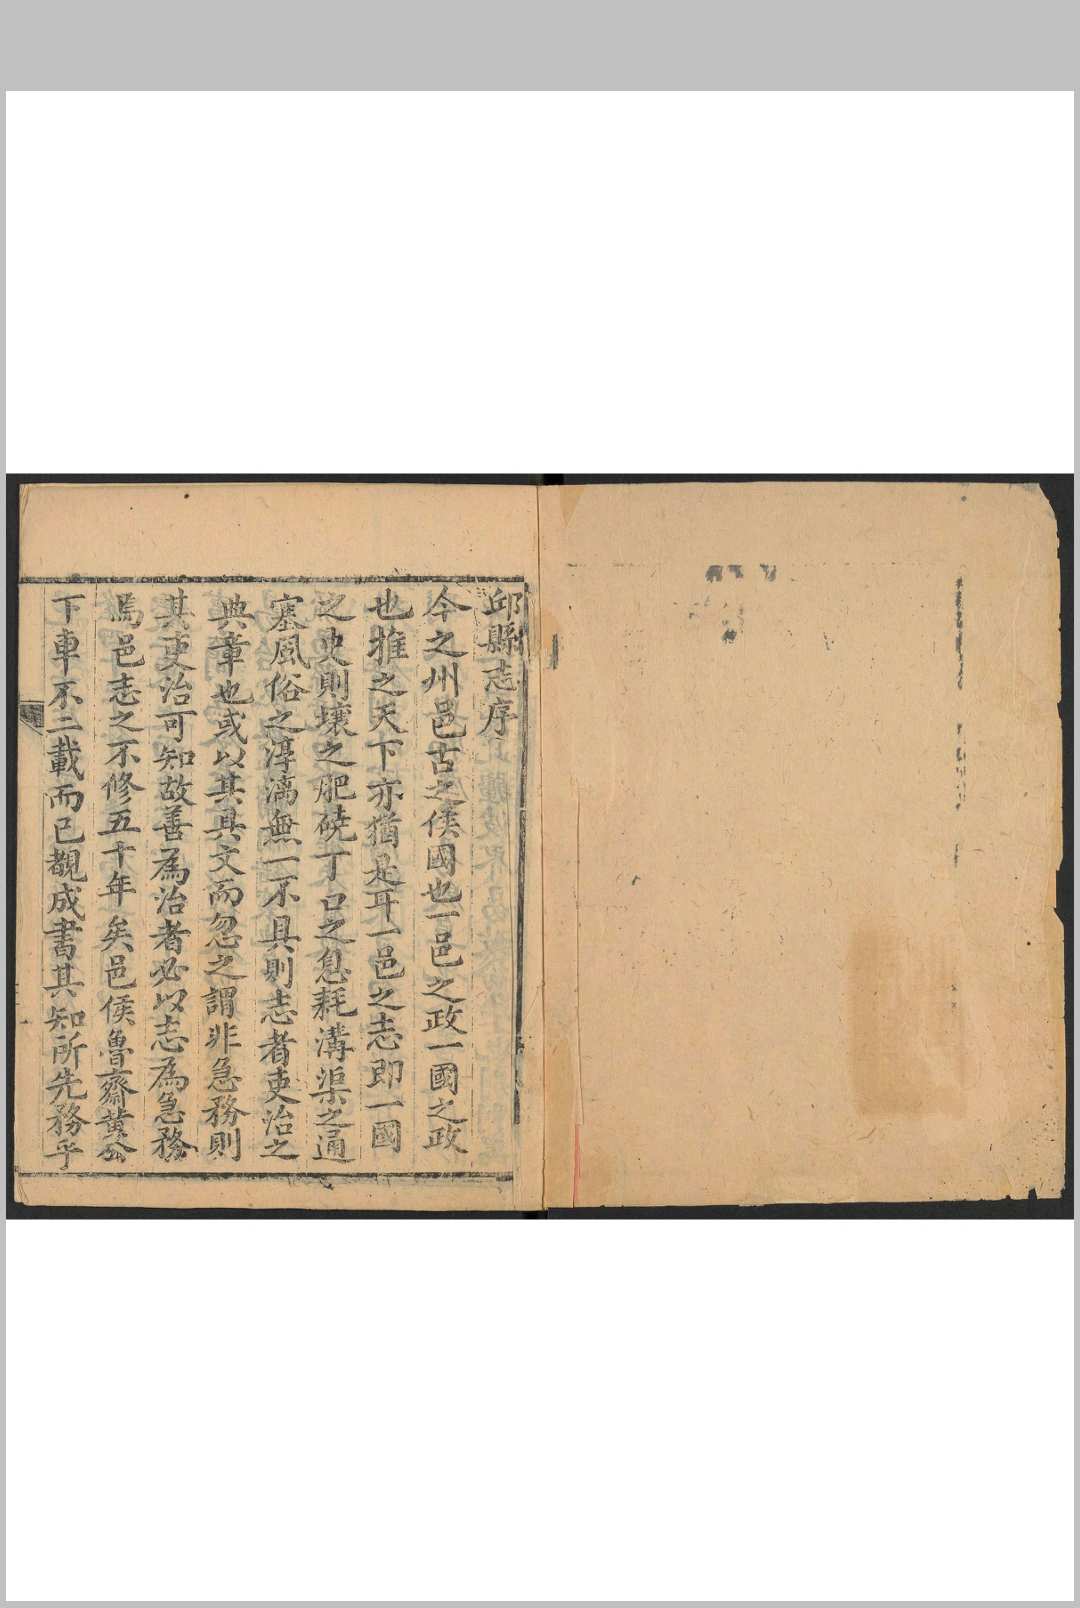 邱縣志序
今之州邑古之侯國也一邑之政一國之政
也推之天下亦猶是耳一邑之志即一國
之史則壤之肥磽丁口之息耗溝渠之通
塞風俗之淳漓無一不具則志者吏治之
典章也或以其具文而忽之謂非急務則
其吏治可知故善為治者必以志為急務
焉邑志之不修五十年矣邑侯魯齋黃公
下車不二載而已觀成書其知所先務乎